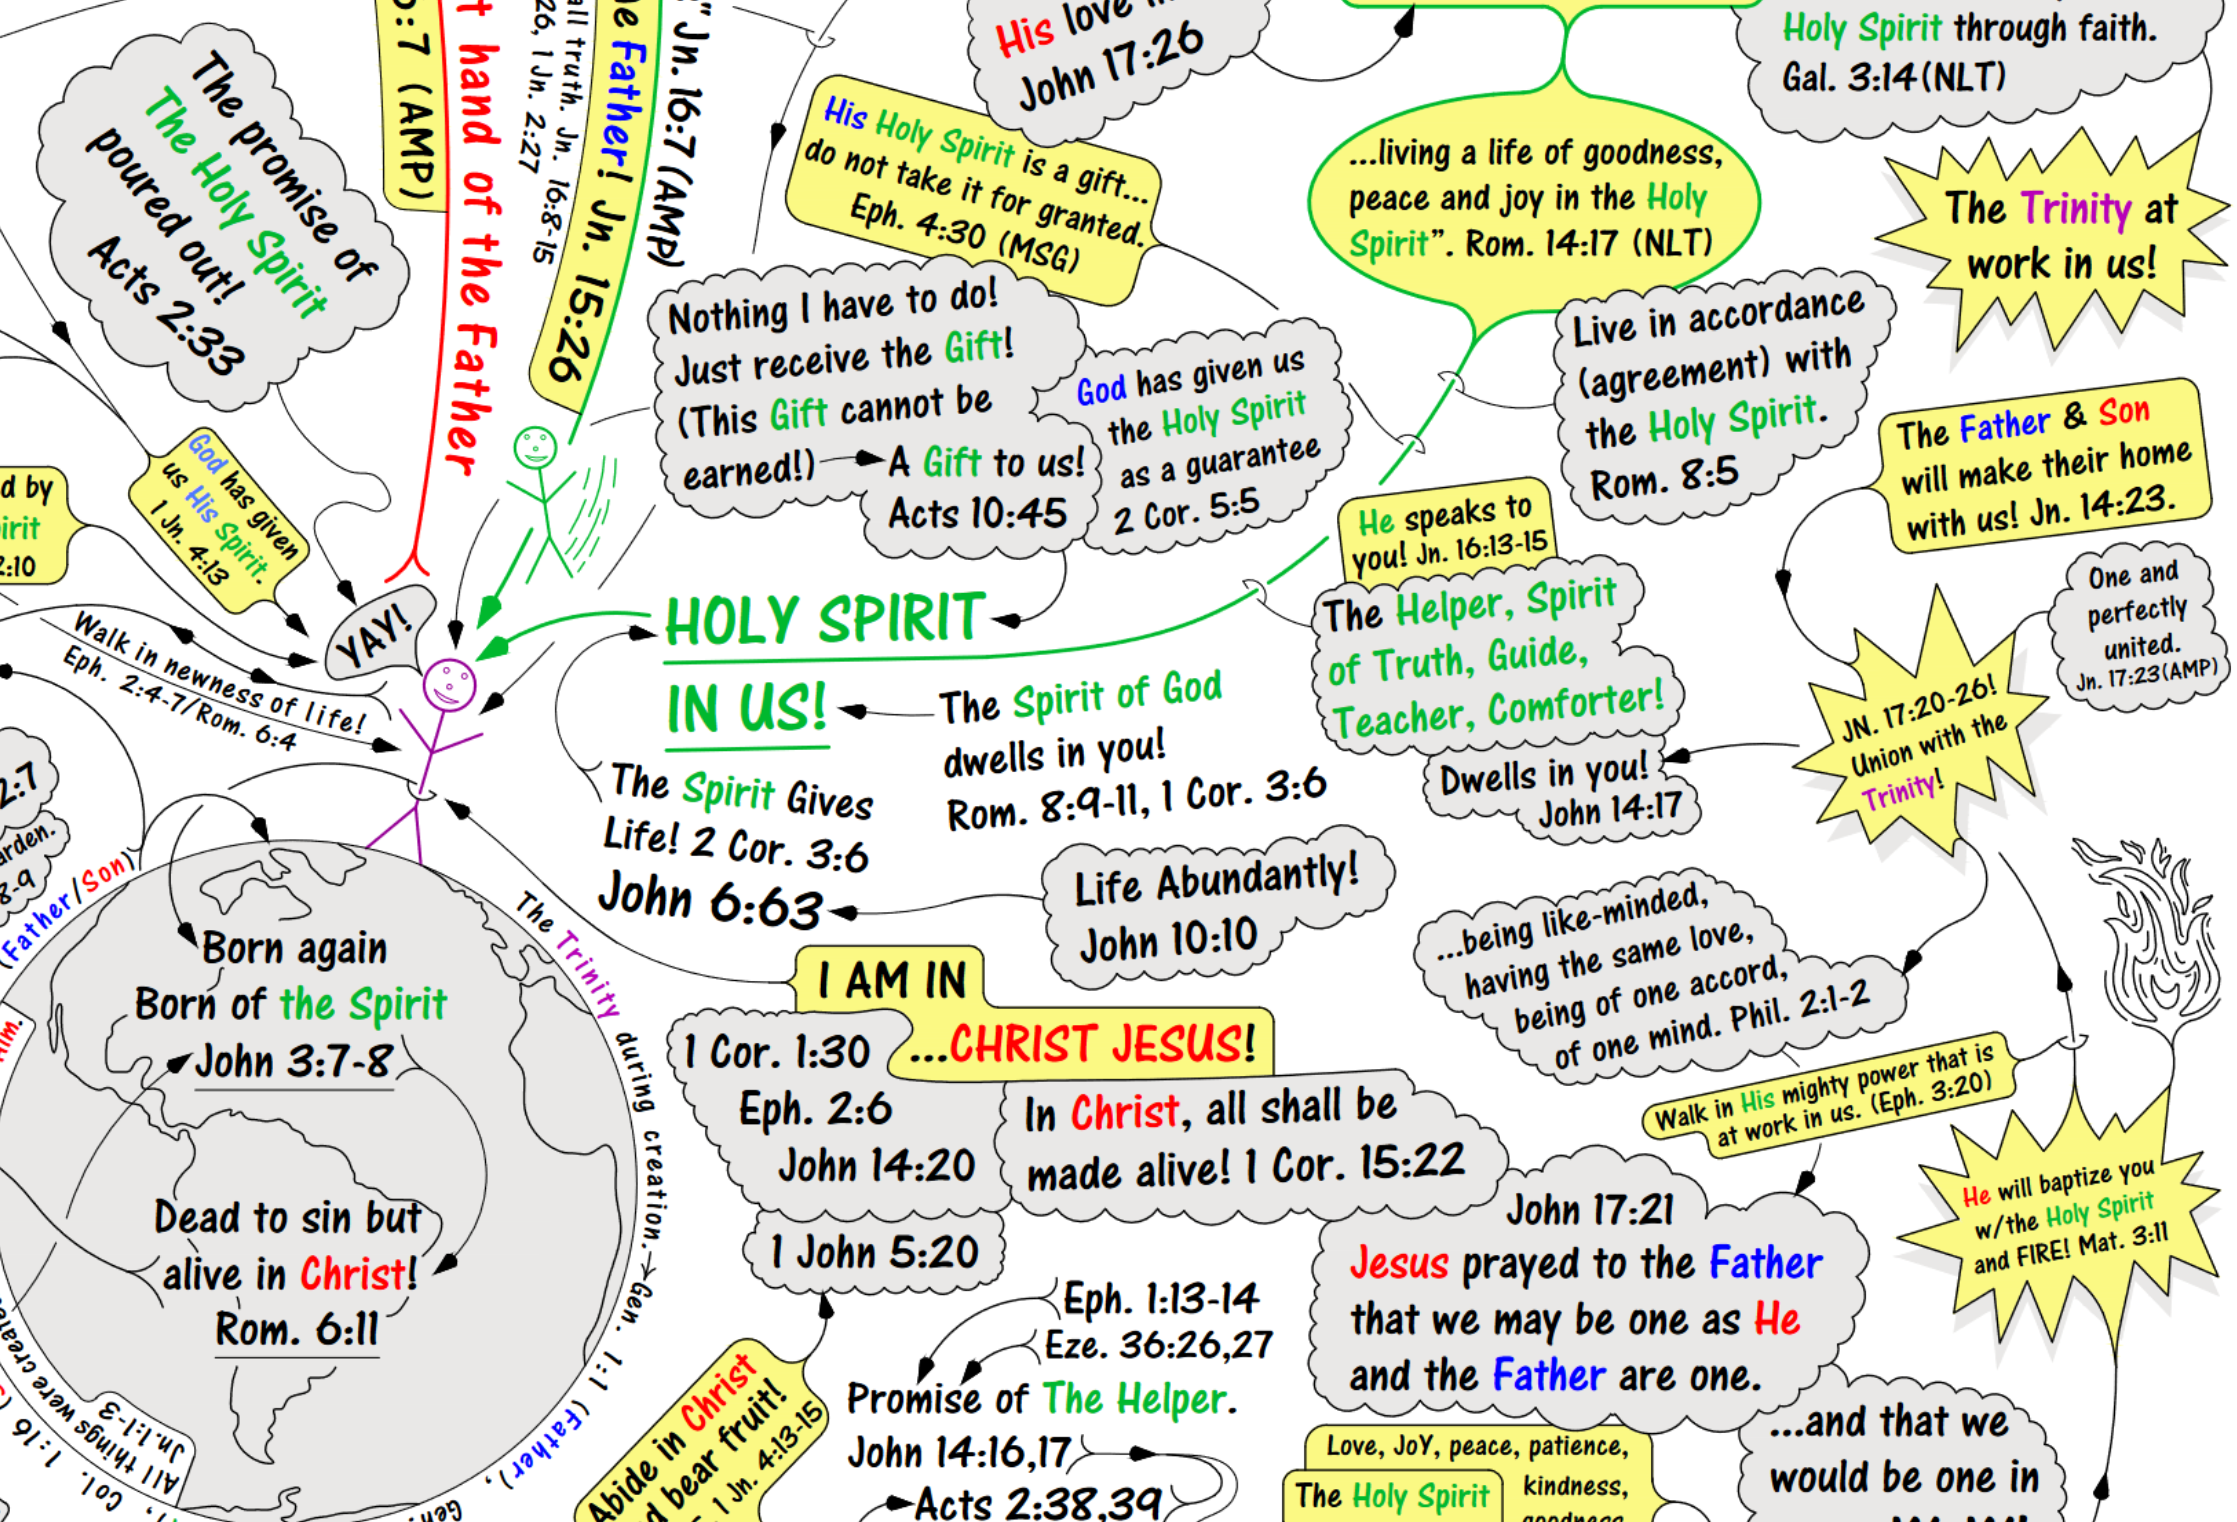 The promise of
The Holy Spirit
poured out!
Acts 2:33
:7 (AMP)
hand of the Father
all truth. Jn. 16:8-15
26, 1 Jn. 2:27
Father! Jn. 15:26
Jn. 16:7 (AMP)
His love
John 17:26
His Holy Spirit is a gift...
do not take it for granted.
Eph. 4:30 (MSG)
...living a life of goodness,
peace and joy in the Holy
Spirit". Rom. 14:17 (NLT)
Holy Spirit through faith.
Gal. 3:14(NLT)
The Trinity at
work in us!
Nothing I have to do!
Just receive the Gift!
(This Gift cannot be
earned!)
A Gift to us!
Acts 10:45
God has given us
the Holy Spirit
as a guarantee
2 Cor. 5:5
Live in accordance
(agreement) with
the Holy Spirit.
Rom. 8:5
The Father & Son
will make their home
with us! Jn. 14:23.
d by
irit
2:10
God has given
us His Spirit.
1 Jn. 4:13
YAY!
Walk in newness of life!
Eph. 2:4-7/Rom. 6:4
He speaks to
you! Jn. 16:13-15
The Helper, Spirit
of Truth, Guide,
Teacher, Comforter!
Dwells in you!
John 14:17
One and
perfectly
united.
Jn. 17:23(AMP)
JN. 17:20-26!
Union with the
Trinity!
HOLY SPIRIT
IN US!
The Spirit of God
dwells in you!
Rom. 8:9-11, 1 Cor. 3:6
The Spirit Gives
Life! 2 Cor. 3:6
John 6:63
Life Abundantly!
John 10:10
2:7
arden.
8-9
(Father/Son)
Him.
Born again
Born of the Spirit
John 3:7-8
Dead to sin but
alive in Christ!
Rom. 6:11
The Trinity during creation.→Gen. 1:1 (Father), Gen.
All things were created
Jn.1:1-3
Col. 1:16
I AM IN
...CHRIST JESUS!
1 Cor. 1:30
Eph. 2:6
John 14:20
1 John 5:20
In Christ, all shall be
made alive! 1 Cor. 15:22
...being like-minded,
having the same love,
being of one accord,
of one mind. Phil. 2:1-2
Walk in His mighty power that is
at work in us. (Eph. 3:20)
He will baptize you
w/the Holy Spirit
and FIRE! Mat. 3:11
John 17:21
Jesus prayed to the Father
that we may be one as He
and the Father are one.
...and that we
would be one in
Abide in Christ
bear fruit!
1 Jn. 4:13-15
Eph. 1:13-14
Eze. 36:26,27
Promise of The Helper.
John 14:16,17
Acts 2:38,39
Love, JoY, peace, patience,
kindness,
The Holy Spirit